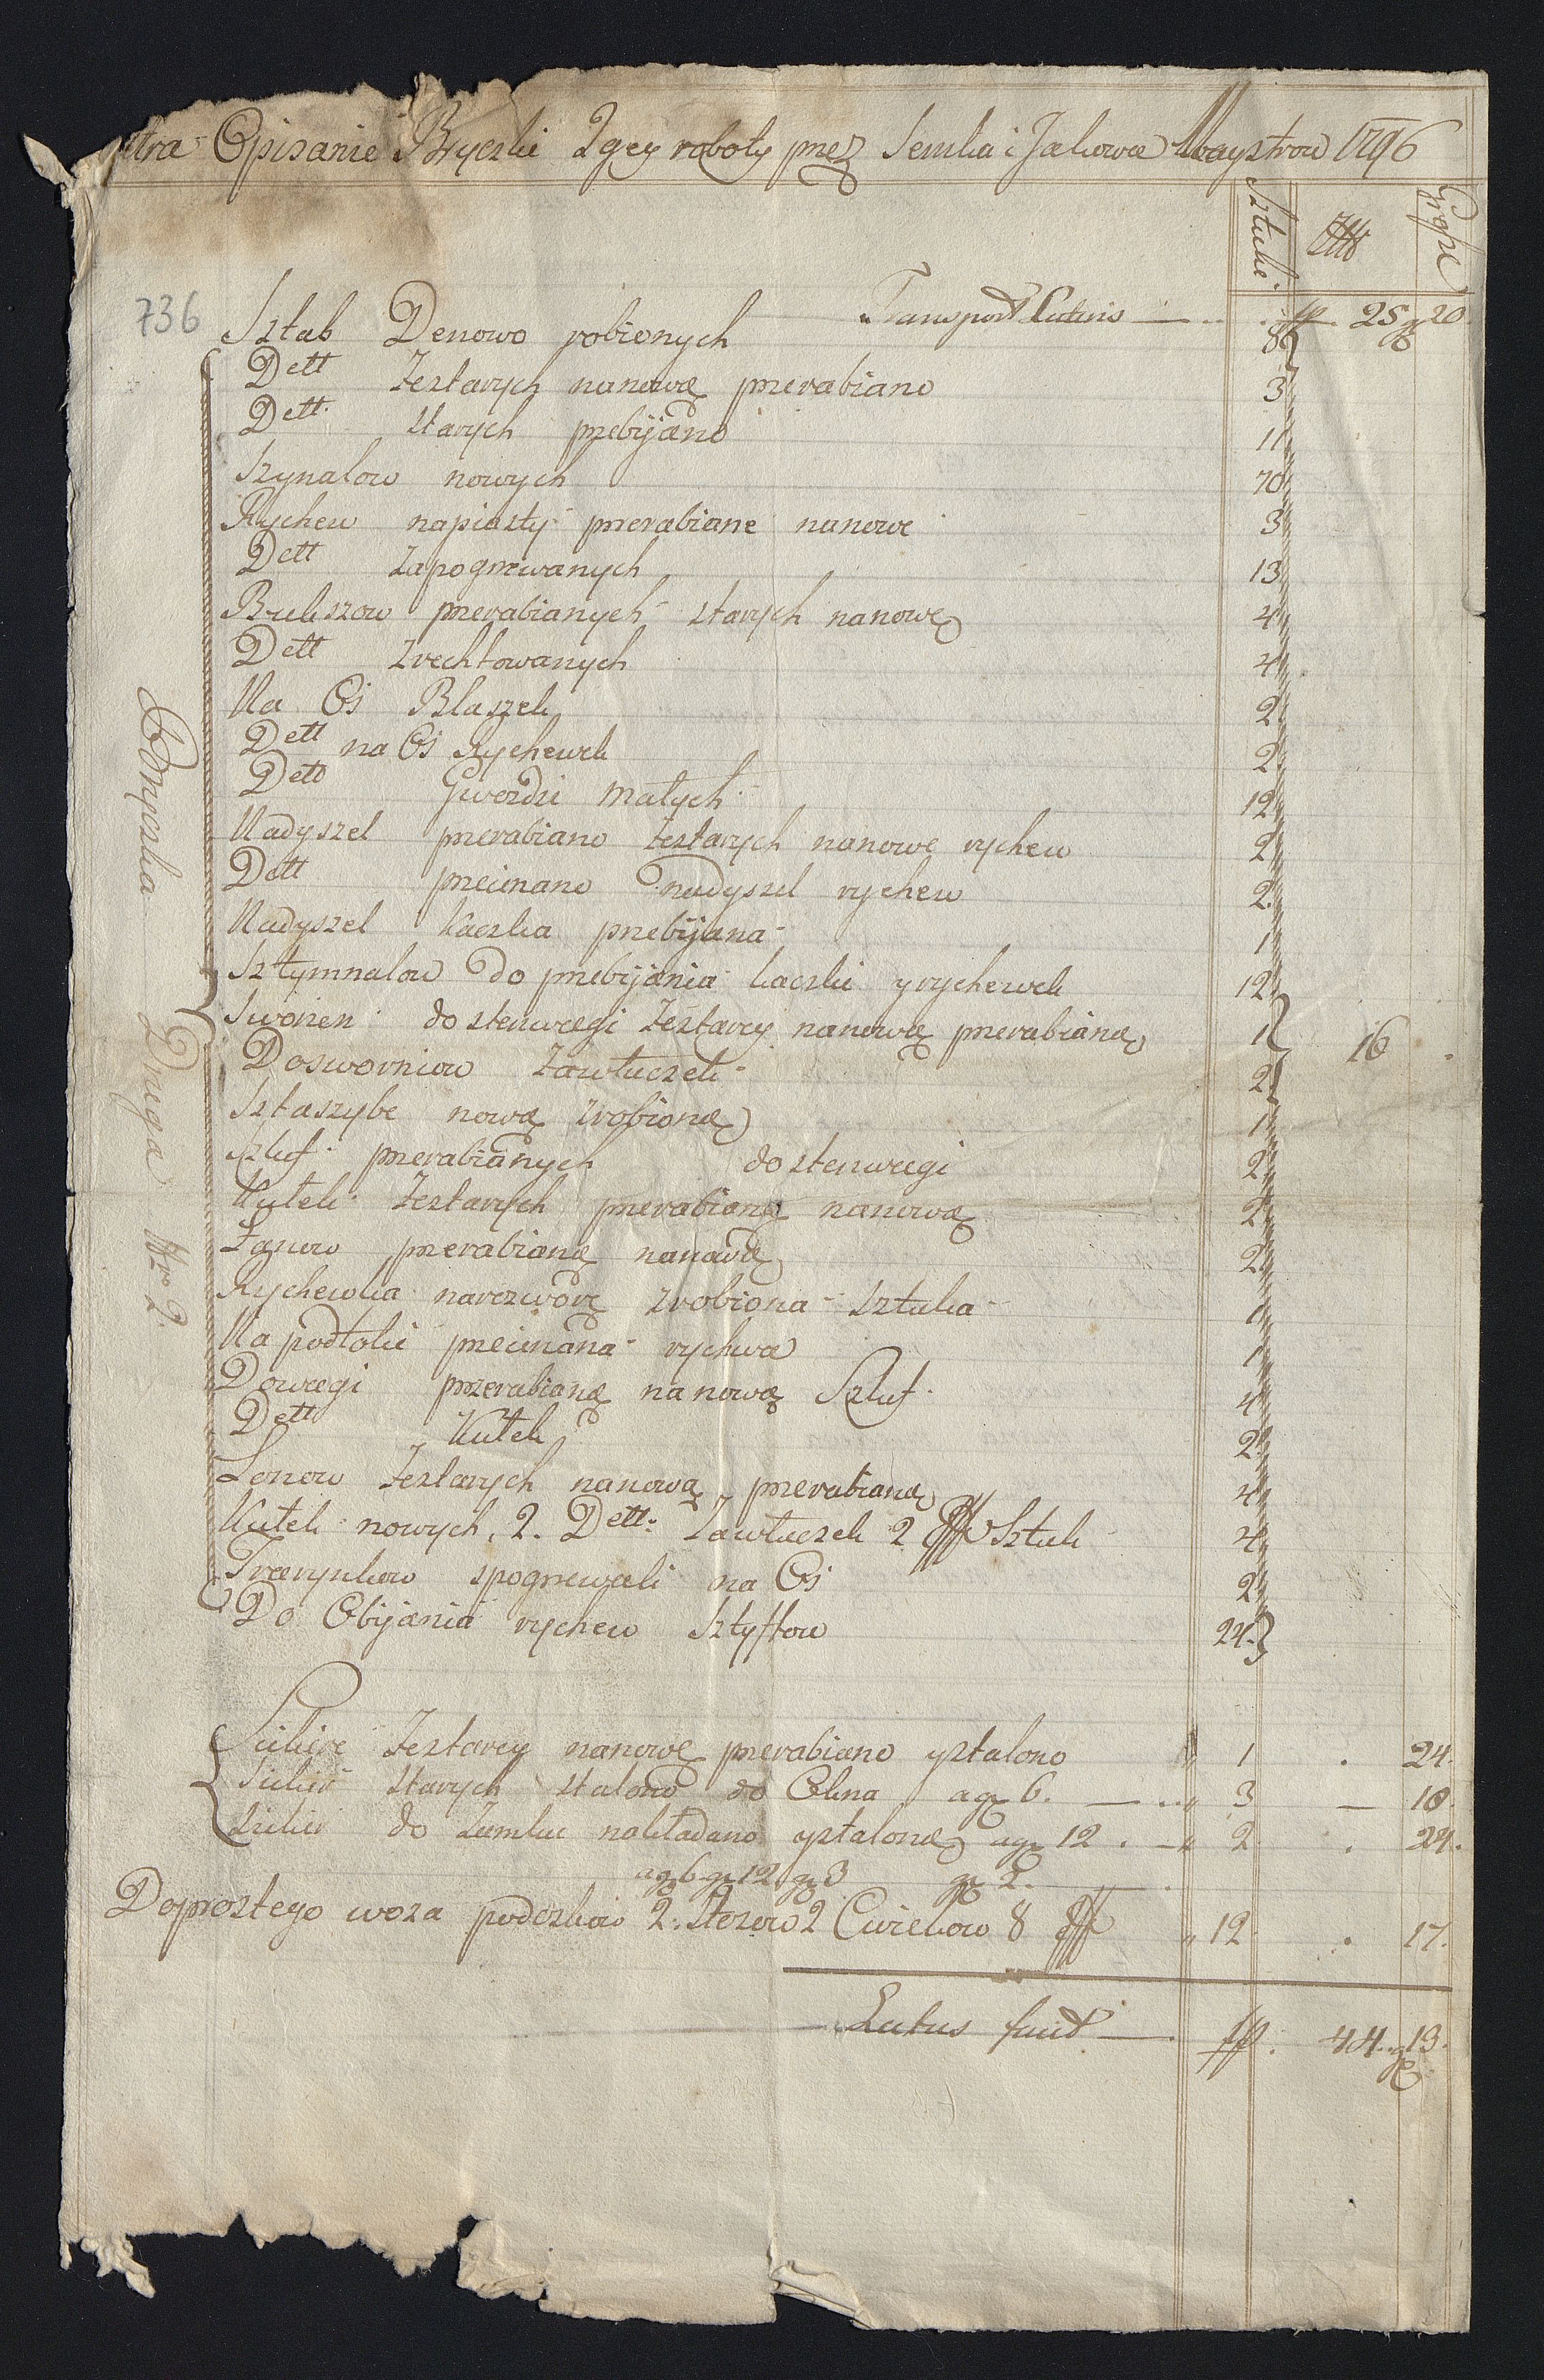 Opisanie Bryczki 2gey roboty przez Semka i Jakowa Maystrow 1796
Sztuki Złł Grosze
736
Transport Lateris fp. 25 gr 20
Sztab Denowo robionych 8
Dett Zestarych nanowę przerabiano 3
Dett. starych przebijano 11
Szynalow nowych 70
Rychew napiasty przerabiane nanowe 3
Dett zapogrzewanych 13
Bukszow przerabianych starych nanowę 4
Dett zrechtowanych 4
Na Oś Blaszek 2
Dett na Oś Rychewek 2
Dett Gwozdzi małych 12
Nadyszel przerabiano zestarych nanowe rychew 2
Dett przecinano nadyszel rychew 2.
Nadyszel kaczka przebijana 1
Sztymnalow do przebijania kaczki y rychewek 12
Sworzen do stenwegi zestarey nanowę przerabianę 1 16
Dosworniow zawłuczek 2
Sztaszybe nowę zrobionę 1
Szluf przerabianych do stenwagi 2
Kutek zestarych przerabianę nanowę 2
Łanow przerabianę nanowę 2
Rychewka narozworę zrobiona sztuka 1
Na podtoki przecinana rychwa 1
Dowagi przerabianę nanowę Szluf 4
Dett Kutek 2
Lonow zestarych nanowę przerabianę 4
Kutek nowych 2. Dett: Zawłuczek 2 Sztuk 4
Trarynkow spogrzewali na Oś 2
Do Obijania rychew sztyftow 24.
Bryczka Druga Nro 2.
Sikirę Zestarey nanowę przerabiano ystalono 1 . 24.
Sikir starych stalono do Okna agr 6. 3 — 18
Sikir do Zamku nakładano ystalonę agr 12. 2 . 24.
agr 6 gr 12 gr 3 gr 2.
Doprostego woza podoskow 2. 2 Cwiekow 8 12 . 17.
Latus facit fp. 44. gr 13.